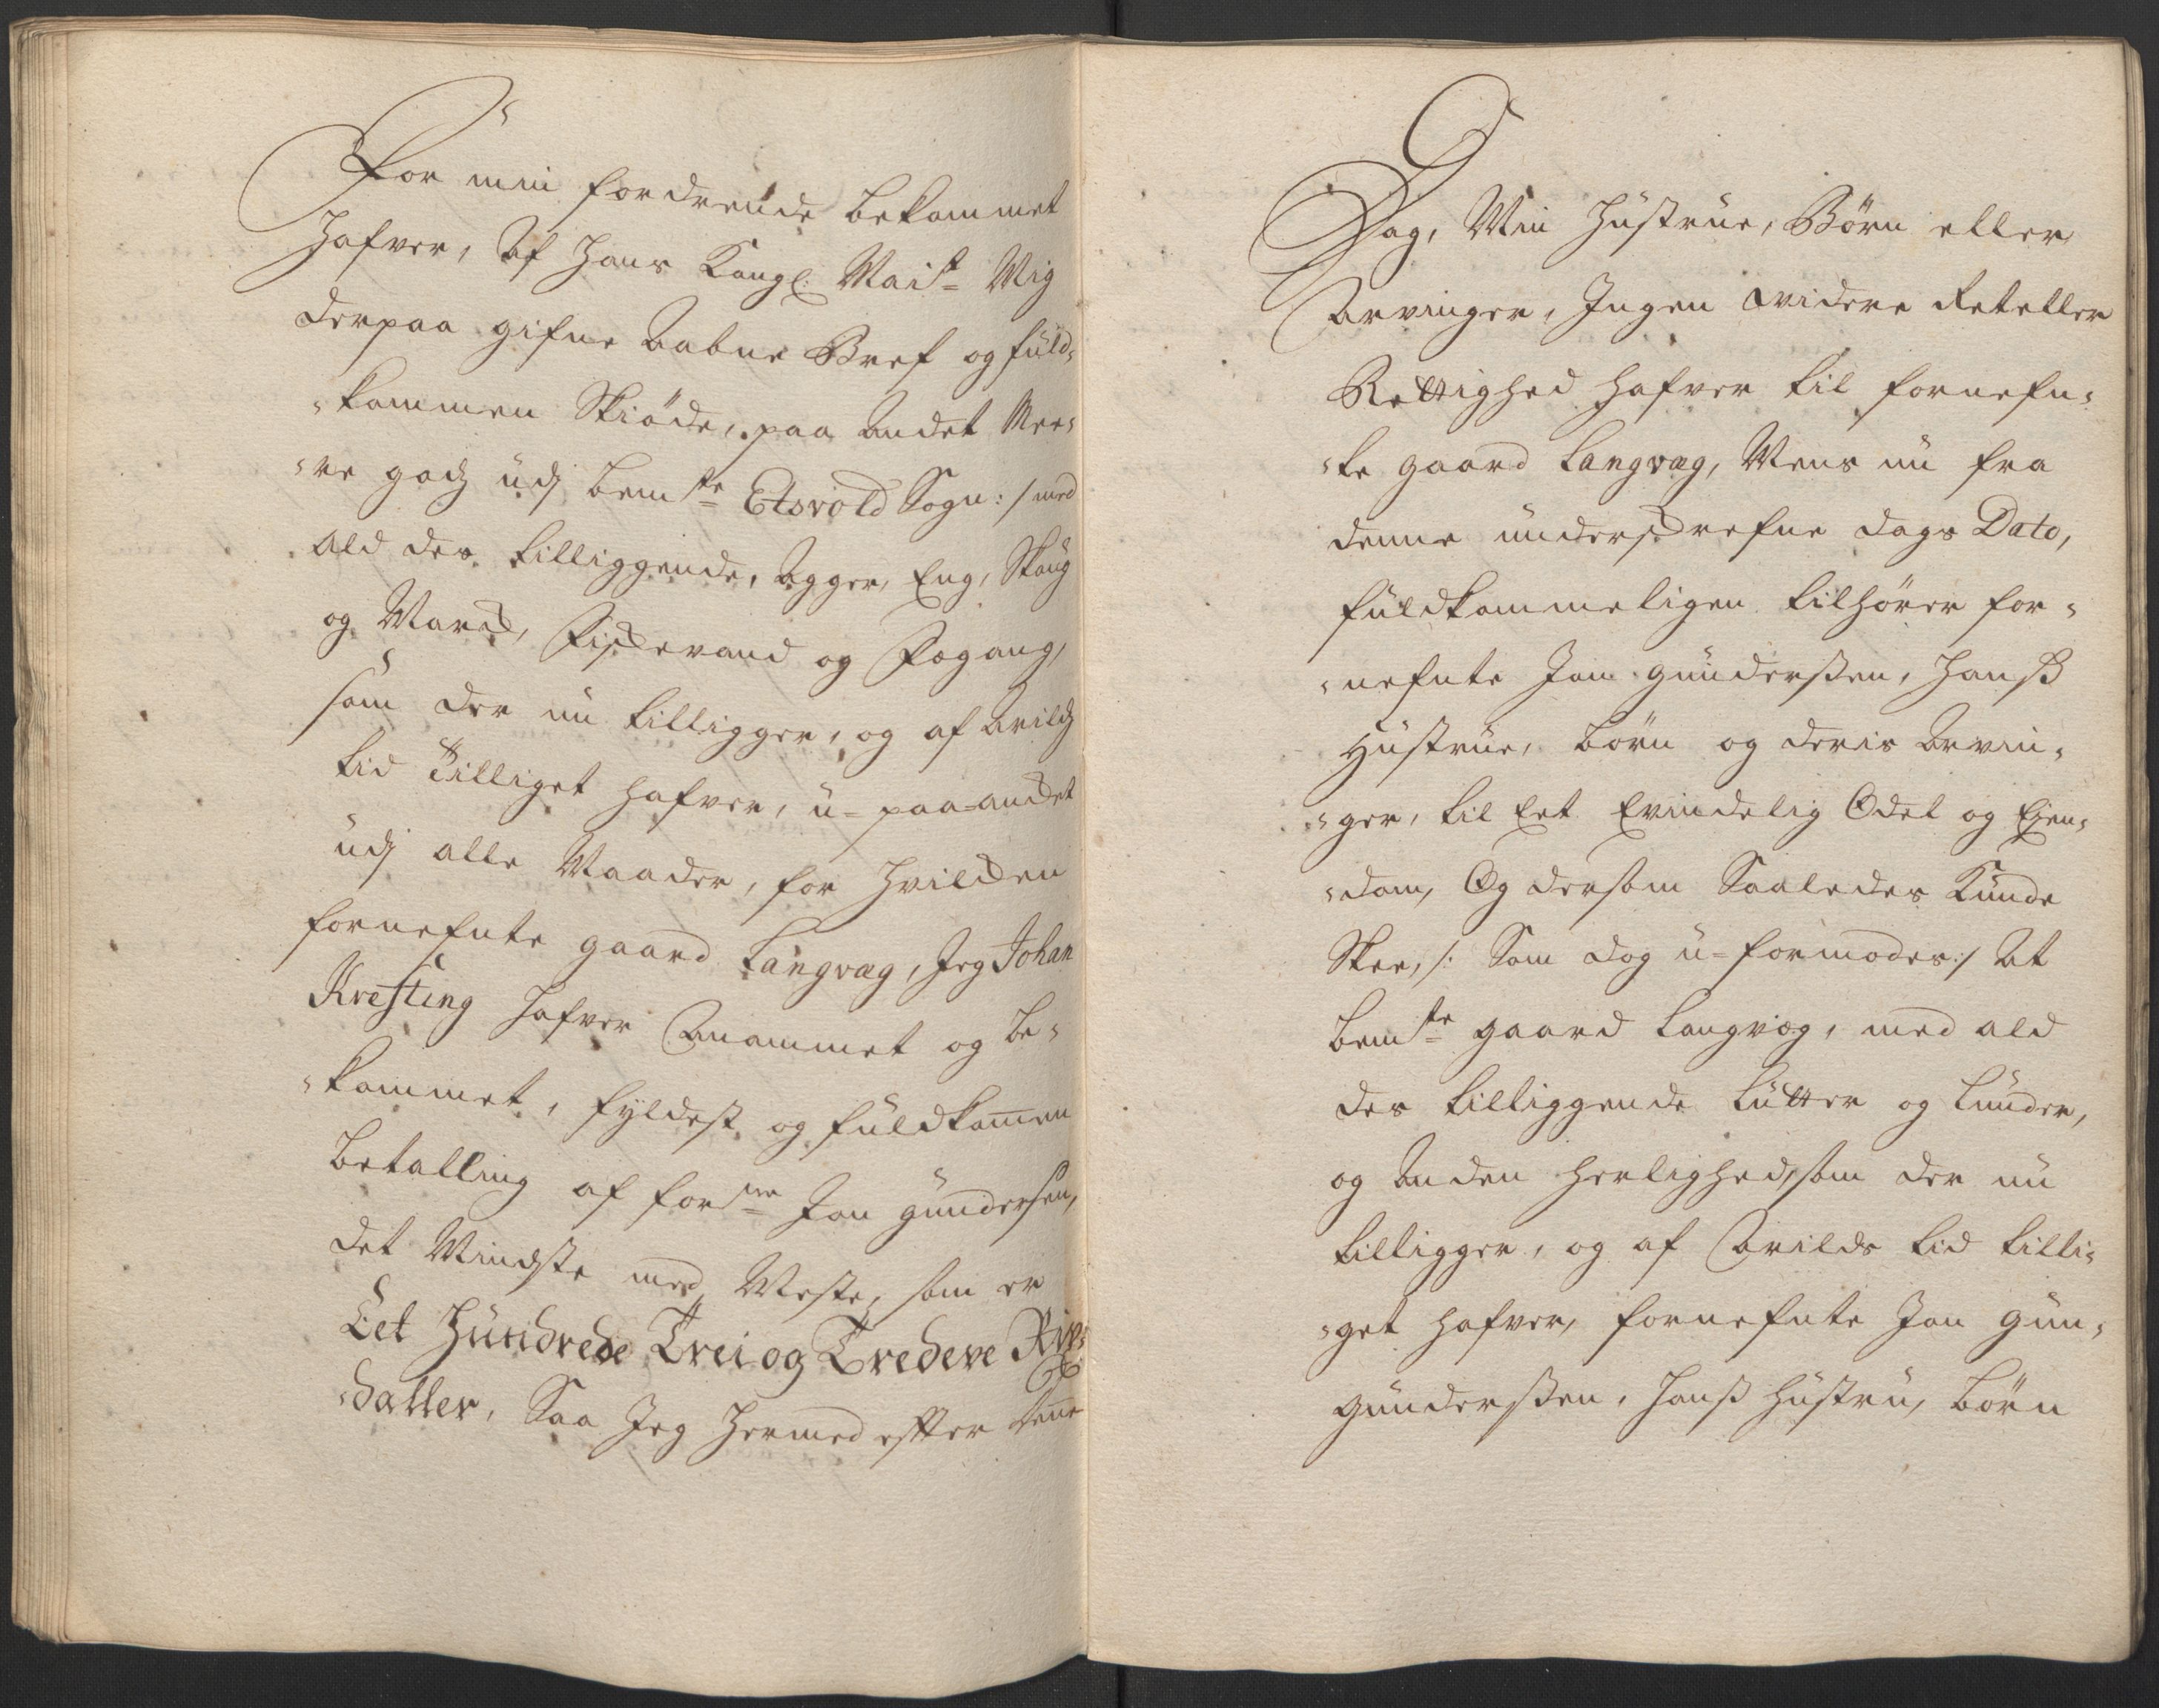 For min fordrende bekommet
hafver, Af Hans Kongl: Mai.t Mig
derpaa gifne Aabne Bref og fuld-
-kommen Skiöde, paa Andet Mee-
-re godz udj bem.te Edsvold Sogn :/ med
Ald des tilliggende, Agger, Eng, Skoug
og March, Fischevand og Fægang,
som der nu tilligger, og af Arildz
tid Tilliget hafver, u-paa-ancket
udj alle Maader, for hvilcken
fornefnte gaard Langvag, Jeg Johan
Kresting hafver Anammet og be-
-kommet, fyldest og fuldkom̅en
betalling af for.ne Jon Gundersen,
det Mindste med Meste, som er
Eet Hundrede Trei og Tredeve Rix-
-daller, Saa Jeg hermed effter denne
Dag, Min Hustrue, Börn eller
Arvinger, Ingen videre Ret eller
Rettighed hafver til fornefn-
-te gaard Langvag, Mens nu fra
denne underschrefne dags Dato,
fuldkommeligen tilhörer for-
-nefnte Jon Gunderßen, hanß
Hustrue, börn og deris Arvin-
-ger, til Eet Evindelig Odel og Ejen-
-dom, Og dersom Saaledes Kunde
Skee, /: Som dog u-formodes :/ At
bem.te gaard Langvag, med ald
des tilliggende Lutter og Lunder,
og Anden herlighed, som der nu
tilligger, og af Arilds tid tilli-
-get hafver, fornefnte Jon Gun-
Gunderßen, hanß Hustru, börn